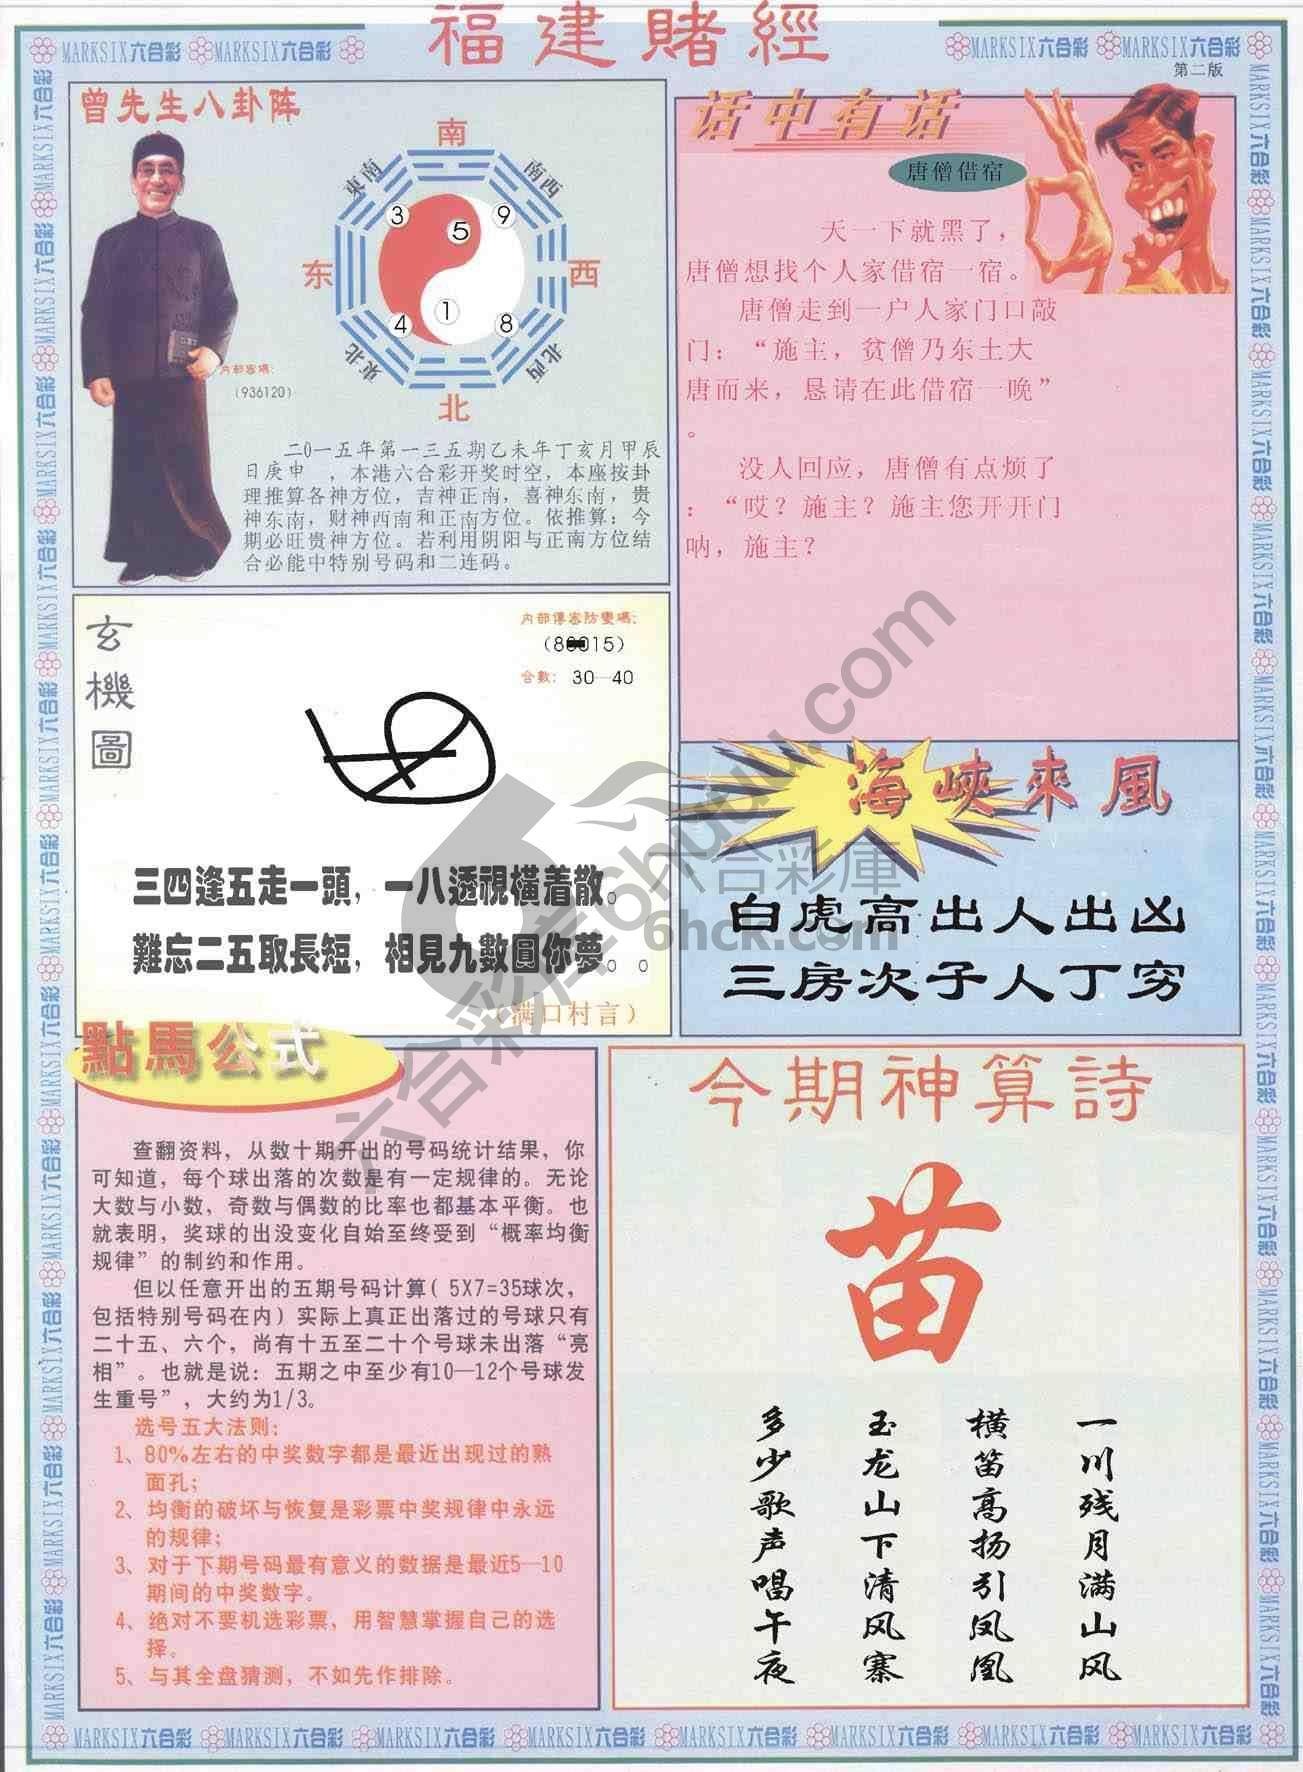 福建賭經
MARKSIX六合彩 MARKSIX六合彩
MARKSIX六合彩 MARKSIX六合彩
第二版
曾先生八卦阵
南
東南
南西
3
9
5
东
西
1
4
8
東北
北西
北
内部密碼:
(936120)
二0一五年第一三五期乙未年丁亥月甲辰
日庚申 ，本港六合彩开奖时空，本座按卦
理推算各神方位，吉神正南，喜神东南，贵
神东南，财神西南和正南方位。依推算：今
期必旺贵神方位。若利用阴阳与正南方位结
合必能中特别号码和二连码。
话中有话
唐僧借宿
天一下就黑了，
唐僧想找个人家借宿一宿。
唐僧走到一户人家门口敲
门：“施主，贫僧乃东土大
唐而来，恳请在此借宿一晚”
。
没人回应，唐僧有点烦了
：“哎？施主？施主您开开门
呐，施主？
玄機圖
内部傳密防變碼:
15)
合數: 30—40
三四逢五走一頭，一八透視橫着散。
難忘二五取長短，相見九數圓你夢。。
（满口村言）
海峽來風
白虎高出人出凶
三房次子人丁穷
六合彩库6hquu.com
六合彩庫
6hck.com
點馬公式
查翻资料，从数十期开出的号码统计结果，你
可知道，每个球出落的次数是有一定规律的。无论
大数与小数，奇数与偶数的比率也都基本平衡。也
就表明，奖球的出没变化自始至终受到“概率均衡
规律”的制约和作用。
但以任意开出的五期号码计算( 5X7=35球次，
包括特别号码在内）实际上真正出落过的号球只有
二十五、六个，尚有十五至二十个号球未出落“亮
相”。也就是说：五期之中至少有10—12个号球发
生重号”，大约为1/3。
选号五大法则：
1、80%左右的中奖数字都是最近出现过的熟
面孔；
2、均衡的破坏与恢复是彩票中奖规律中永远
的规律；
3、对于下期号码最有意义的数据是最近5—10
期间的中奖数字。
4、绝对不要机选彩票，用智慧掌握自己的选
择。
5、与其全盘猜测，不如先作排除。
今期神算詩
苗
一川残月满山风
横笛高扬引凤凰
玉龙山下清风寨
多少歌声唱午夜
MARKSIX六合彩 MARKSIX六合彩 MARKSIX六合彩 MARKSIX六合彩 MARKSIX六合彩 MARKSIX六合彩 MARKSIX六合彩 MARKSIX六合彩